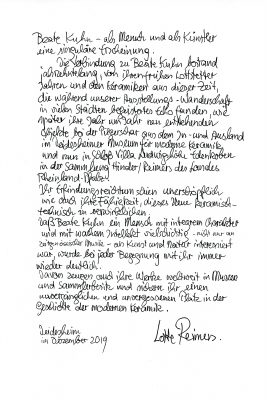 Beate Kuhn – als Mensch und als Künstler
eine singuläre Erscheinung.
Die Verbindung zu Beate Kuhn bestand
jahrzehntelang, von ihren frühen Lottstetter
Jahren und den Keramiken aus dieser Zeit,
die während unserer Ausstellungs-Wanderschaft
in vielen Städten begeistertes Echo fanden, wie
später ihre Jahr um Jahr neu entstehenden
Objekte bei der aus dem In- und Ausland
im Deidesheimer Museum für moderne Keramik
und nun in Schloß Villa Ludwigshöhe Edenkoben
in der Sammlung Hinder/Reimers des Landes
Rheinland-Pfalz.
Ihr Erfindungsreichtum schien unerschöpflich
wie auch ihre Fähigkeit, dieses Neue keramisch-
technisch zu verwirklichen.
Daß Beate Kuhn ein Mensch mit integrem Charakter
und mit wachem Intellekt vielschichtig – nicht nur an
zeitgenössischer Musik – an Kunst und Natur interessiert
war, wurde bei jeder Begegnung mit ihr immer
wieder deutlich.
Davon zeugen auch ihre Werke weltweit in Museen
und Sammlerbesitz und sichern ihr einen
unvergänglichen und unvergessenen Platz in der
Geschichte der modernen Keramik.
Deidesheim
im Dezember 2019
Lotte Reimers.